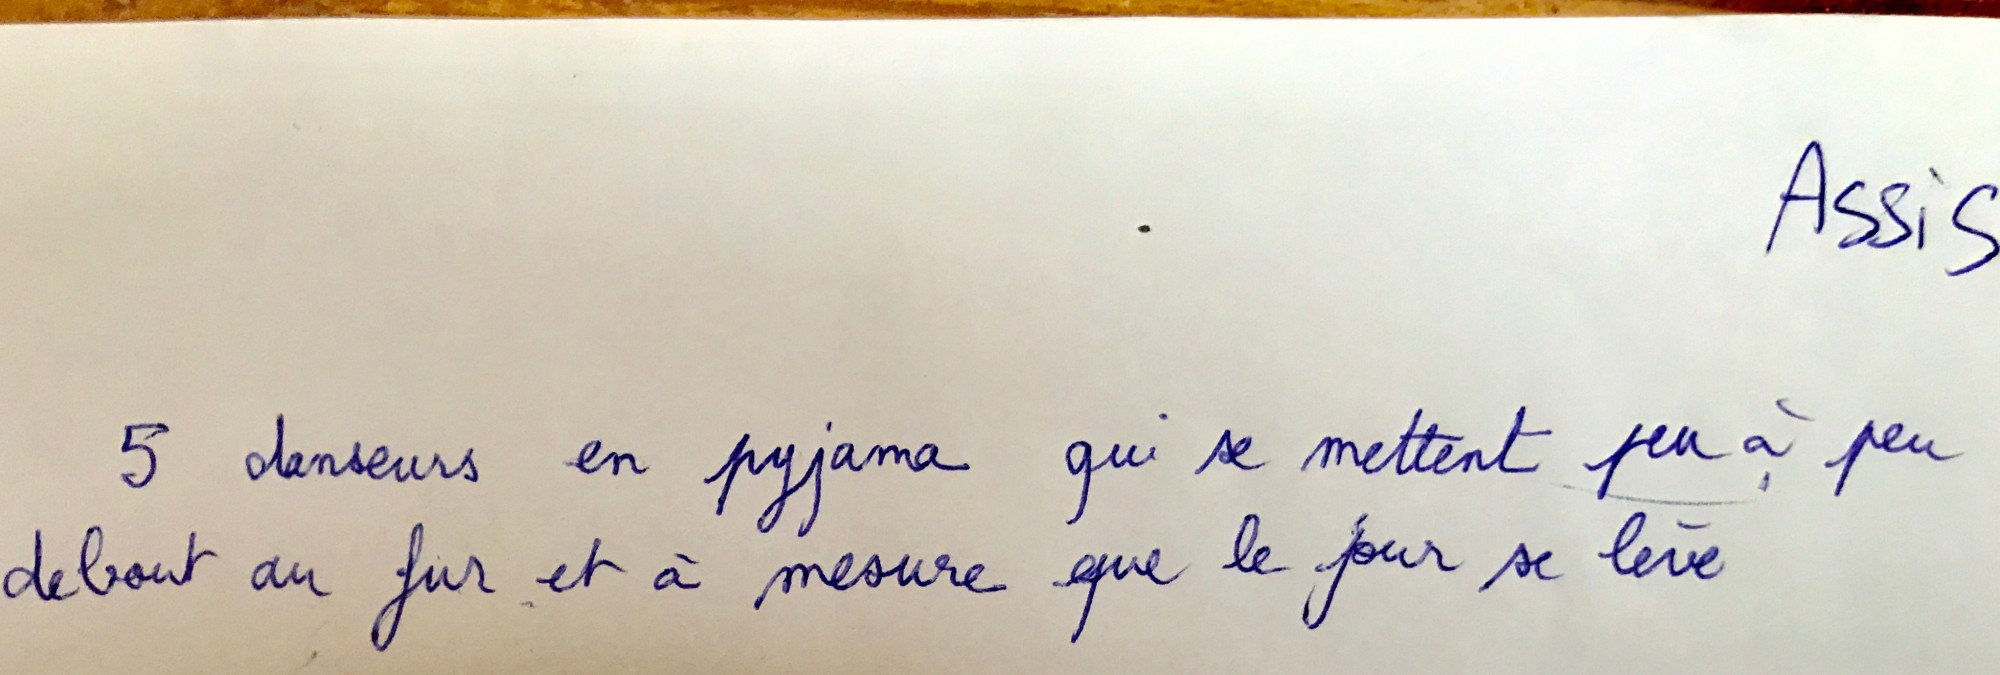 Assis
5 danseurs en pyjama qui se mettent peu à peu
debout au fur et à mesure que le jour se lève